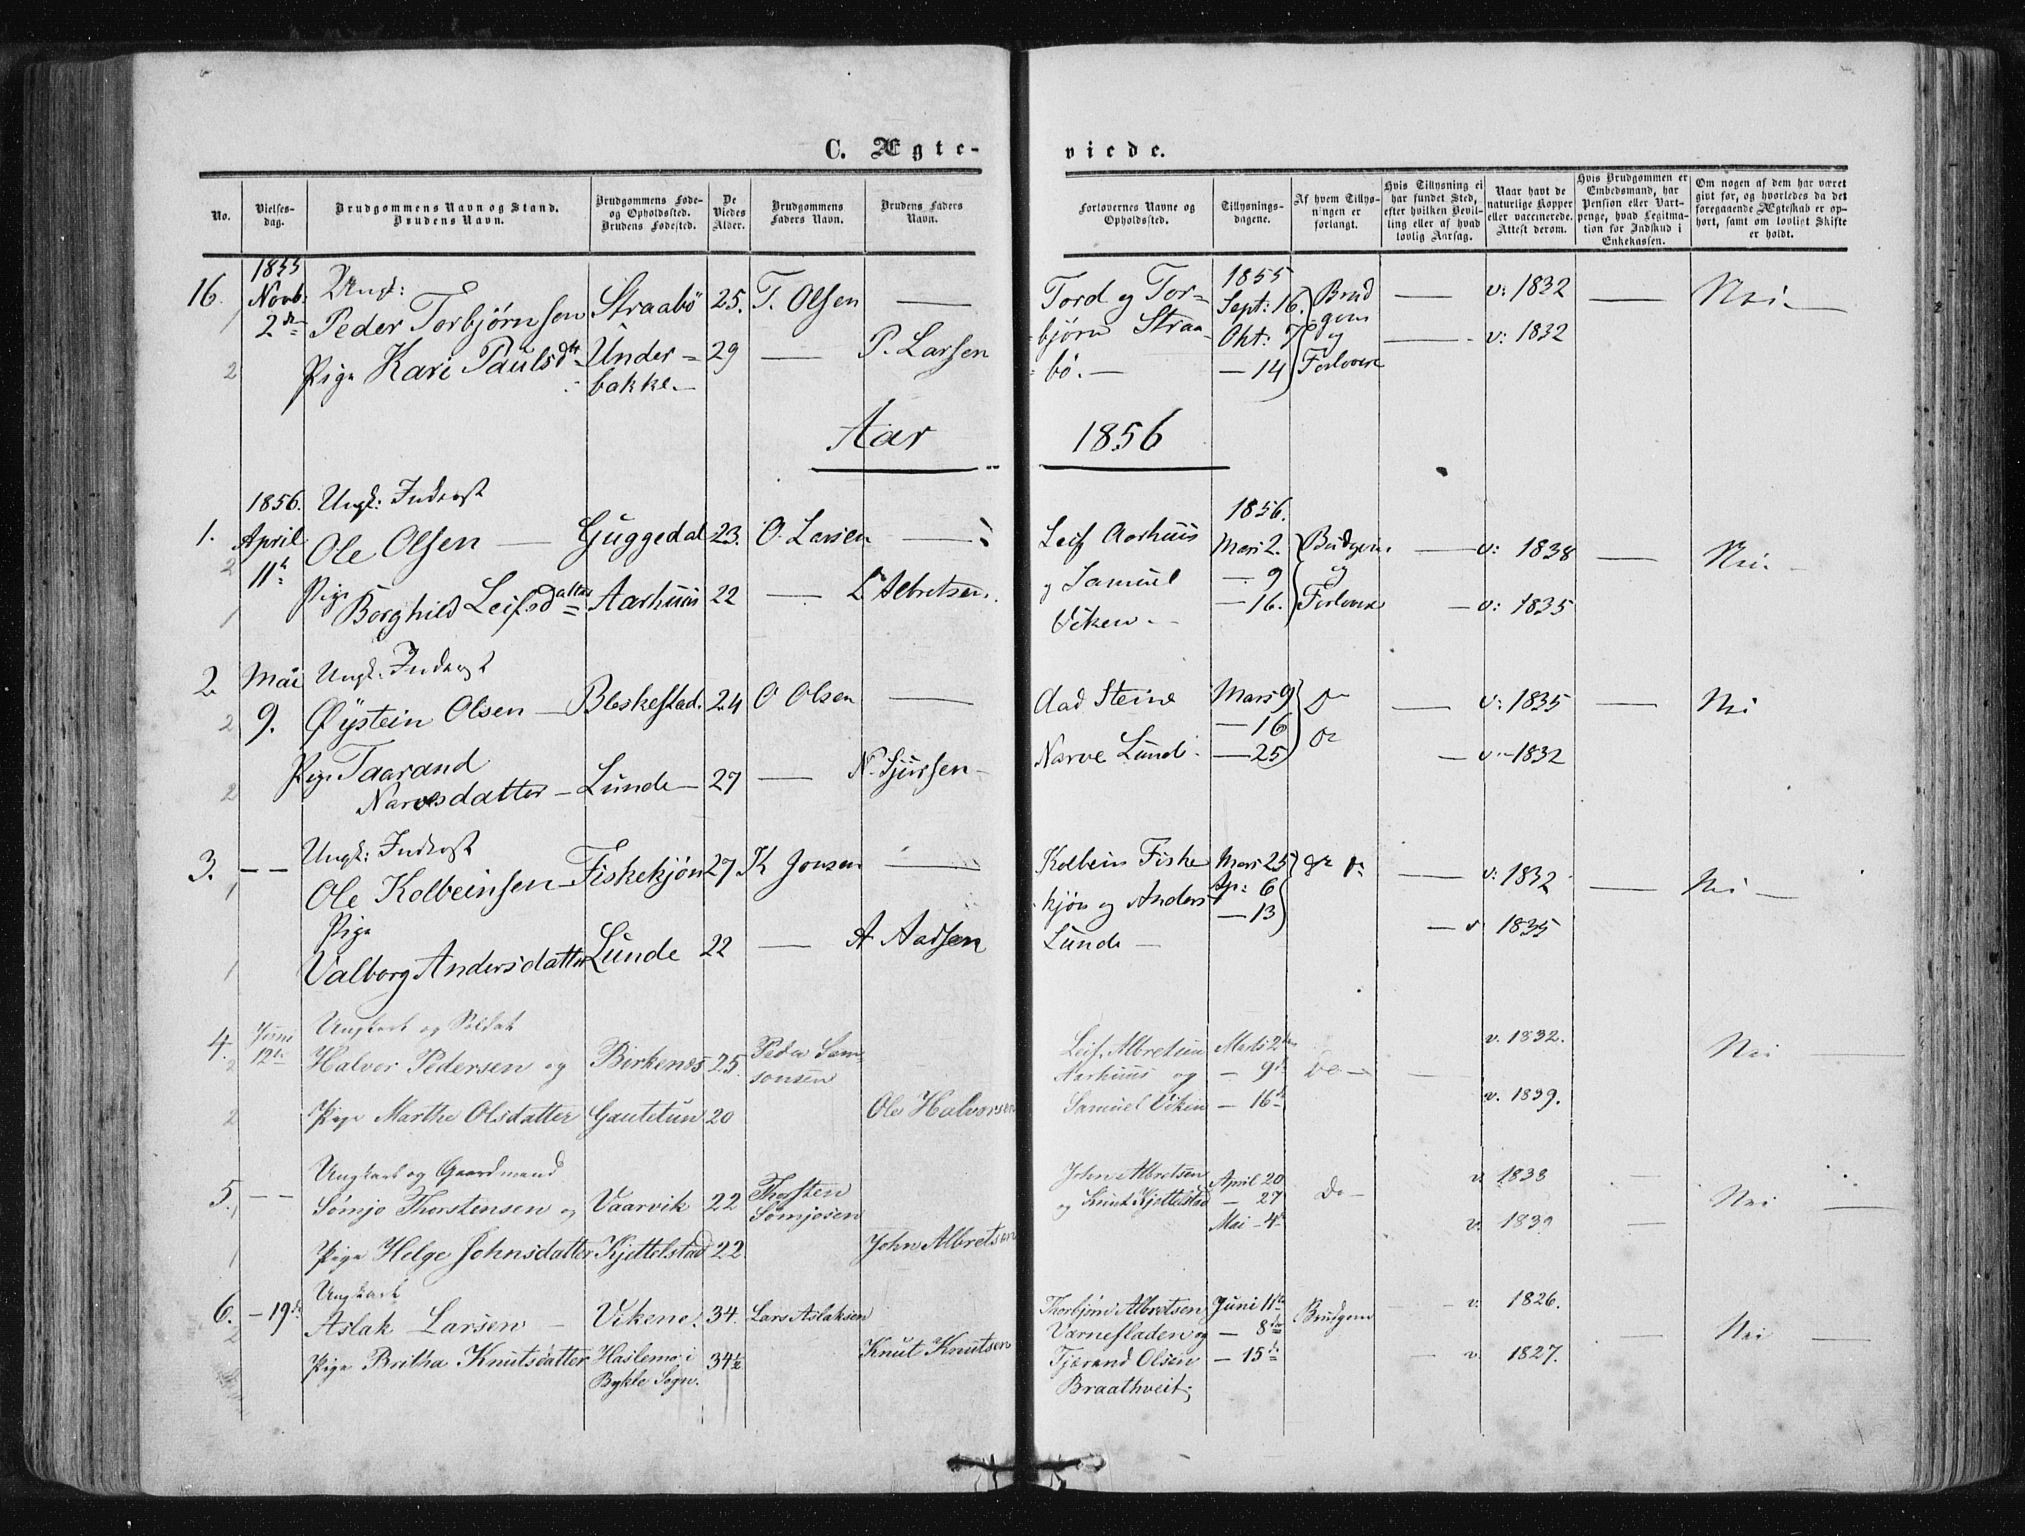 C. Ægte-
viede.
No.
Vielses-
dag.
Brudgommens Navn og Stand.
Brudens Navn.
Brudgommens Føde-
og Opholdssted.
Brudens Fødested.
De
Viedes
Alder.
Brudgommens
Faders Navn.
Brudens Faders
Navn.
Forlovernes Navne og
Opholdssted.
Tillysnings-
dagene.
Af hvem Tillys-
ningen er
forlangt.
Hvis Tillysning ei
har fundet Sted,
efter hvilken Bevil-
ling eller af hvad
lovlig Aarsag.
Naar havt de
naturlige Kopper
eller vaccinerede.
Attest derom.
Hvis Brudgommen er
Embedsmand, har
Pension eller Vart-
penge, hvad Legitima-
tion for Indskud i
Enkekassen.
Om nogen af dem har været
givt før, og hvorledes da det
foregaaende Ægteskab er op-
hørt, samt om lovligt Skifte
er holdt.
16. 1855 Novb: 2den
Ungk:
Peder Torbjørnsen Straabö 25. T. Olsen —
Pige Kari Paulsdtr Under-
bakke. 29 — P. Larsen
Tord og Tor-
bjørn Straa-
bö. —
1855
Sept: 16.
Okt: 7
— 14
Brud
gom
og
Forlovere
— v: 1832 — Nei —
— v: 1832
Aar 1856
1. 1856. April 11te
Ungk: Inderst
Ole Olsen — Guggedal 23. O. Larsen —
Pige
Borghild Leifsdatter Aarhuus 22 — L Albretsen.
Leif Aarhuus
og Samuel
Viken. -
1856.
Mars 2.
— 9
— 16.
Brudgom.
og
Forlovere
— v: 1838 — Nei —
— v: 1835
2. Mai 9.
Ungk: Inderst
Øystein Olsen — Bleskestad. 24 O Olsen —
Pige Taarand
Narvesdatter — Lunde — 27 — N. Sjursen —
Aad Steine
Narve Lunde.
Mars 9
— 16
— 25
Do
Do
— v: 1835 — Nei
— v. 1832
3. — —
Ungk: Inderst
Ole Kolbeinsen — Fiskekjön 27 K Jonsen —
Pige
Valborg Andersdatter Lunde 22 — A Aadsen
Kolbein Fiske
kjön og Anders
Lunde —
Mars 25
Ap: 6
— 13
Do Do
— v: 1832 — Nei —
— v 1835
4. Juni 12te
Ungkarl og Soldat
Halvor Pedersen og Birkenes 25. Peder Sam-
sonsen
Pige Marthe Olsdatter Gautetun 20 Ole Halvorsen
Leif Albretsen
Aarhuus og
Samuel Viken
Marts 2den
— 9de
— 16de
Do —
v. 1832. Nei —
v. 1839.
5. — —
Ungkarl og Gaardmand
Sömjo Thorstensen og Vaarvik 22 Thorsten
Sömjosen
Pige Helge Johnsdatter Kjettelstad 22. John Albretsen
John Albretsen
og Knut Kjettelstad
April 20
— 27
Mai — 4de
Do —
v. 1833 — Nei —
v. 1839 —
6. — 19de
Ungkarl
Aslak Larsen — Vikene. 34. Lars Aslaksen
Pige Britha Knutsdatter Haslemo i
Bykle Sogn. 34½ Knut Knutsen
Thorbjörn Albretsen
Varnesladen og
Tjærand Olsen
Braathveit;
Juni 11te
— 8de
— 15de
Brudgom
— v. 1826. — Nei —
— v. 1827.